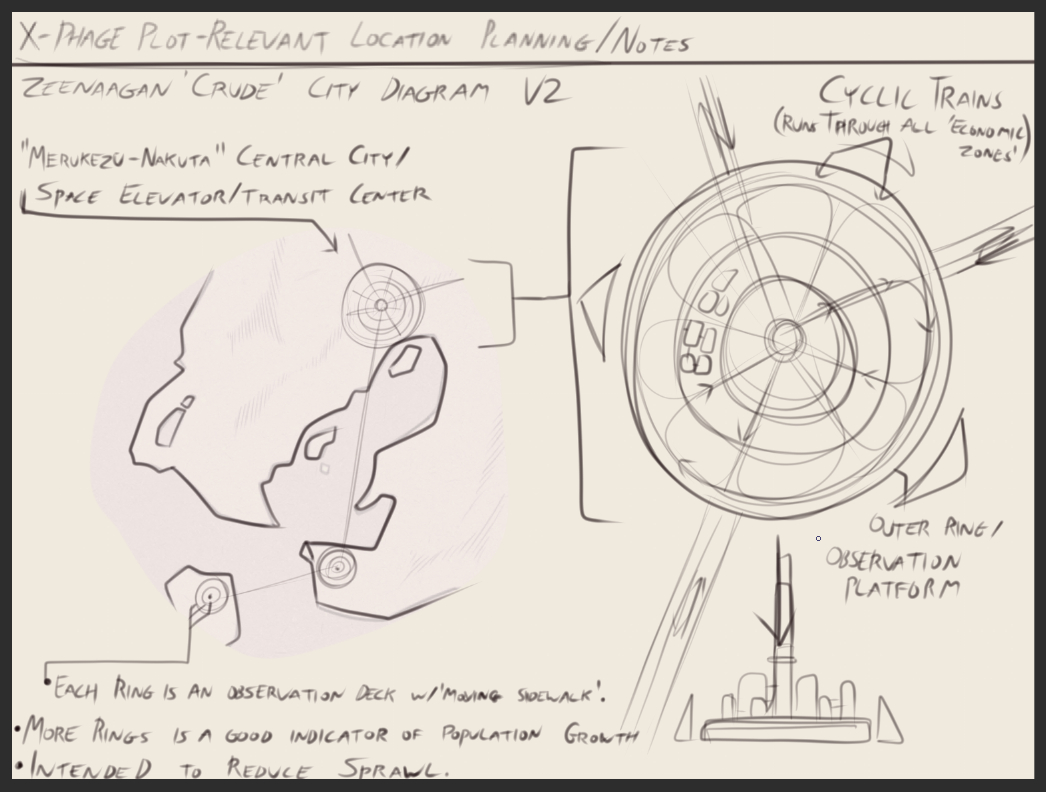 X-PHAGE PLOT-RELEVANT LOCATION PLANNING/NOTES
ZEENAAGAN 'CRUDE' CITY DIAGRAM V2
"MERUKEZU-NAKUTA" CENTRAL CITY/
SPACE ELEVATOR/TRANSIT CENTER
CYCLIC TRAINS
(RUNS THROUGH ALL 'ECONOMIC
ZONES')
OUTER RING/
OBSERVATION
PLATFORM
•EACH RING IS AN OBSERVATION DECK W/'MOVING SIDEWALK'.
•MORE RINGS IS A GOOD INDICATOR OF POPULATION GROWTH
•INTENDED TO REDUCE SPRAWL.